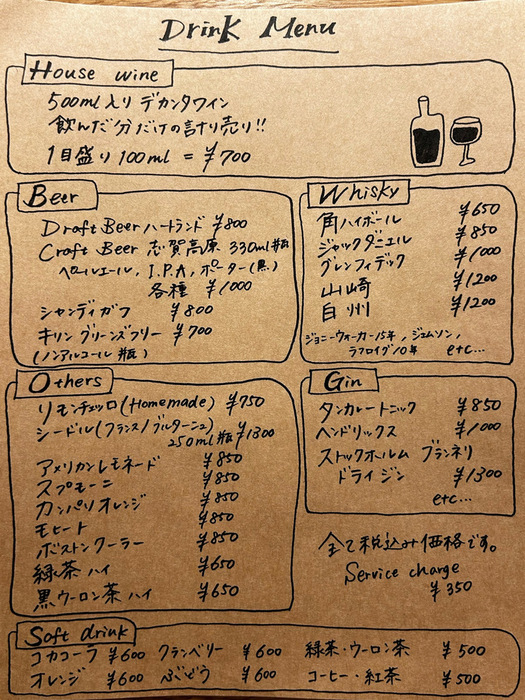 Drink Menu
House wine
500ml入り デカンタワイン
飲んだ分だけの計り売り!!
1目盛り100ml = ¥700
Beer
Draft Beer ハートランド ¥800
Craft Beer 志賀高原 330ml瓶
ペールエール, I.P.A, ポーター(黒)
各種 ¥1000
シャンディガフ ¥800
キリン グリーンズフリー ¥700
(ノンアルコール 瓶)
Whisky
角ハイボール ¥650
ジャックダニエル ¥850
グレンフィデック ¥1000
山崎 ¥1200
白州 ¥1200
ジョニーウォーカー15年, ジェムソン,
ラフロイグ10年 etc...
Others
リモンチェッロ(Homemade) ¥750
シードル(フランス/ブルターニュ)
250ml瓶 ¥1300
アメリカンレモネード ¥850
スプモーニ ¥850
カンパリオレンジ ¥850
モヒート ¥850
ボストンクーラー ¥850
緑茶ハイ ¥650
黒ウーロン茶ハイ ¥650
Gin
タンカレートニック ¥850
ヘンドリックス ¥1000
ストックホルム ブランネリ
ドライジン ¥1300
etc...
全て税込み価格です。
Service charge
¥350
Soft drink
コカコーラ ¥600 クランベリー ¥600 緑茶・ウーロン茶 ¥500
オレンジ ¥600 ぶどう ¥600 コーヒー・紅茶 ¥500